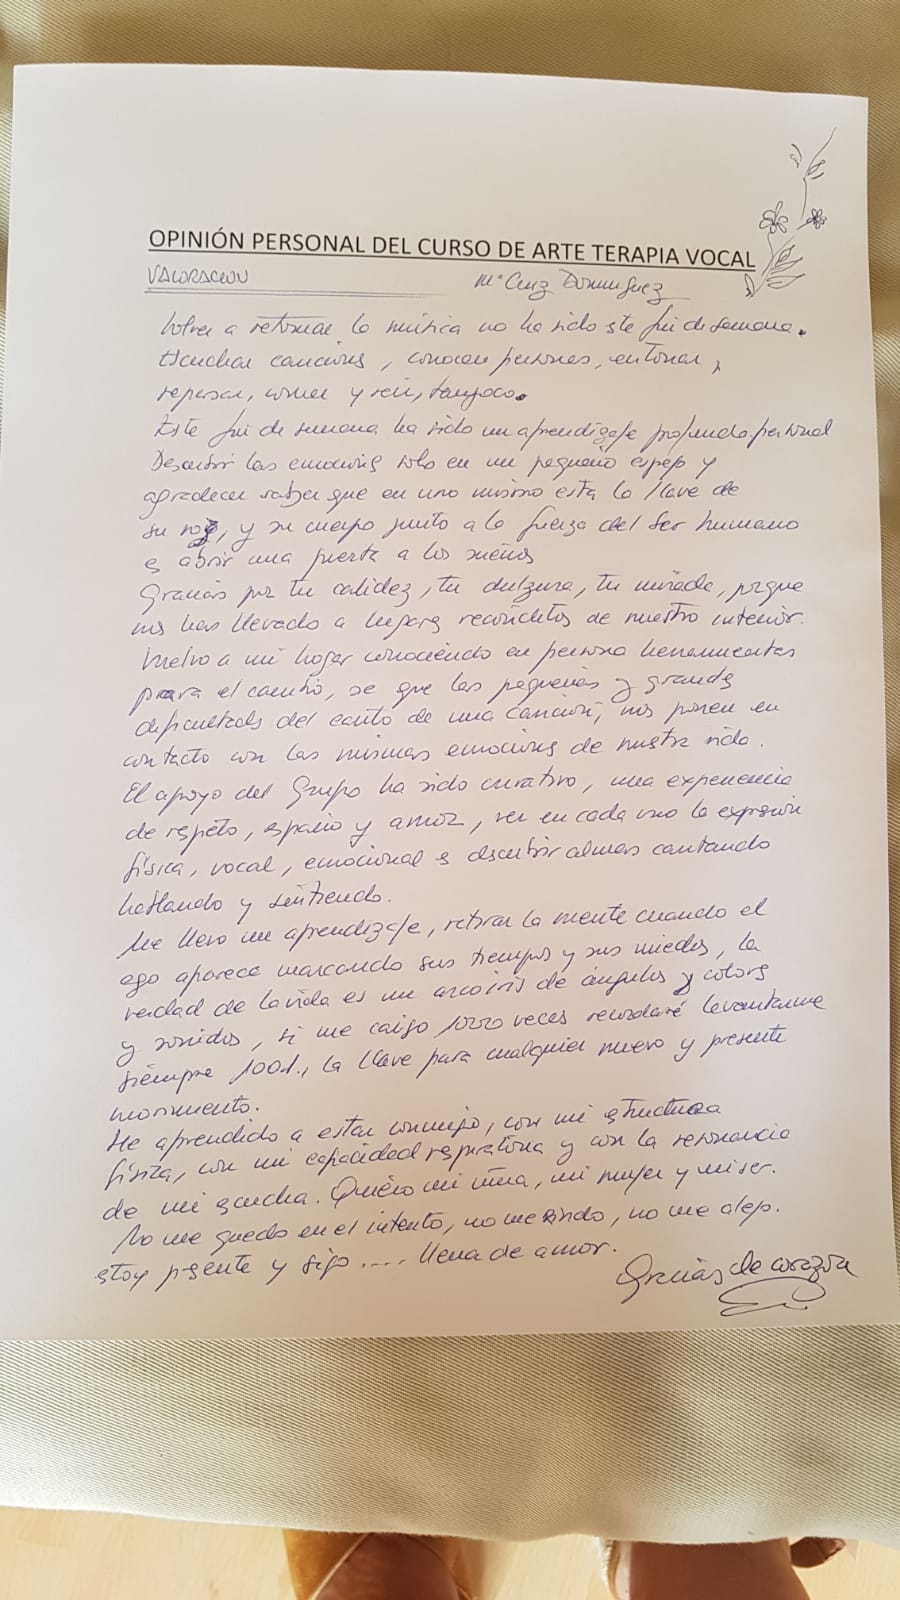 OPINIÓN PERSONAL DEL CURSO DE ARTE TERAPIA VOCAL
VALORACION Mª Cruz Dominguez
Volver a retomar la música no ha sido este fin de semana.
Escuchar canciones, conocer personas, entonar,
repasar, comer y reir, tampoco.
Este fin de semana ha sido un aprendizaje profundo, personal
Descubrir las emociones solo en un pequeño espejo y
agradecer saber que en uno mismo esta la llave de
su voz, y su cuerpo junto a la fuerza del Ser humano
es abrir una puerta a los sueños
Gracias por tu calidez, tu dulzura, tu mirada, porque
nos has llevado a lugares recónditos de nuestro interior.
Vuelvo a mi hogar conociendo en persona herramientas
para el cambio, se que las pequeñas y grandes
dificultades del canto de una canción, nos ponen en
contacto con las mismas emociones de nuestra vida.
El apoyo del Grupo ha sido curativo, una experiencia
de respeto, espacio y amor, ver en cada uno la expresión
física, vocal, emocional es descubrir almas cantando
hablando y sintiendo.
Me llevo un aprendizaje, retirar la mente cuando el
ego aparece marcando sus tiempos y sus miedos, la
verdad de la vida es un arcoiris de ángulos y colores
y sonidos, si me caigo 1000 veces recordaré levantarme
siempre 1001, la llave para cualquier nuevo y presente
momento.
He aprendido a estar conmigo, con mi estructura
física, con mi capacidad respiratoria y con la resonancia
de mi escucha. Quiero mi niña, mi mujer y mi ser.
No me quedo en el intento, no me rindo, no me alejo.
estoy presente y sigo .... llena de amor.
Gracias de corazón